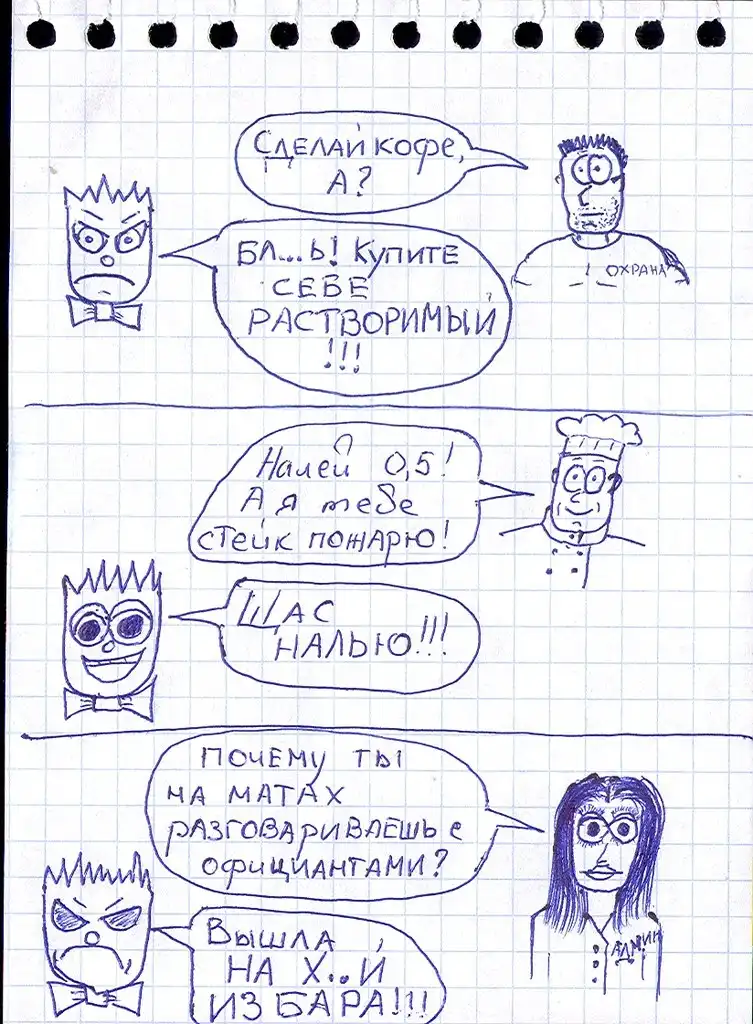 Сделай кофе,
А?
Бл...ь! Купите
себе
растворимый
!!!
Охрана
Налей 0,5!
А я тебе
стейк пожарю!
Щас
налью!!!
Почему ты
на матах
разговариваешь с
официантами?
Админ
Вышла
на х..й
из бара!!!